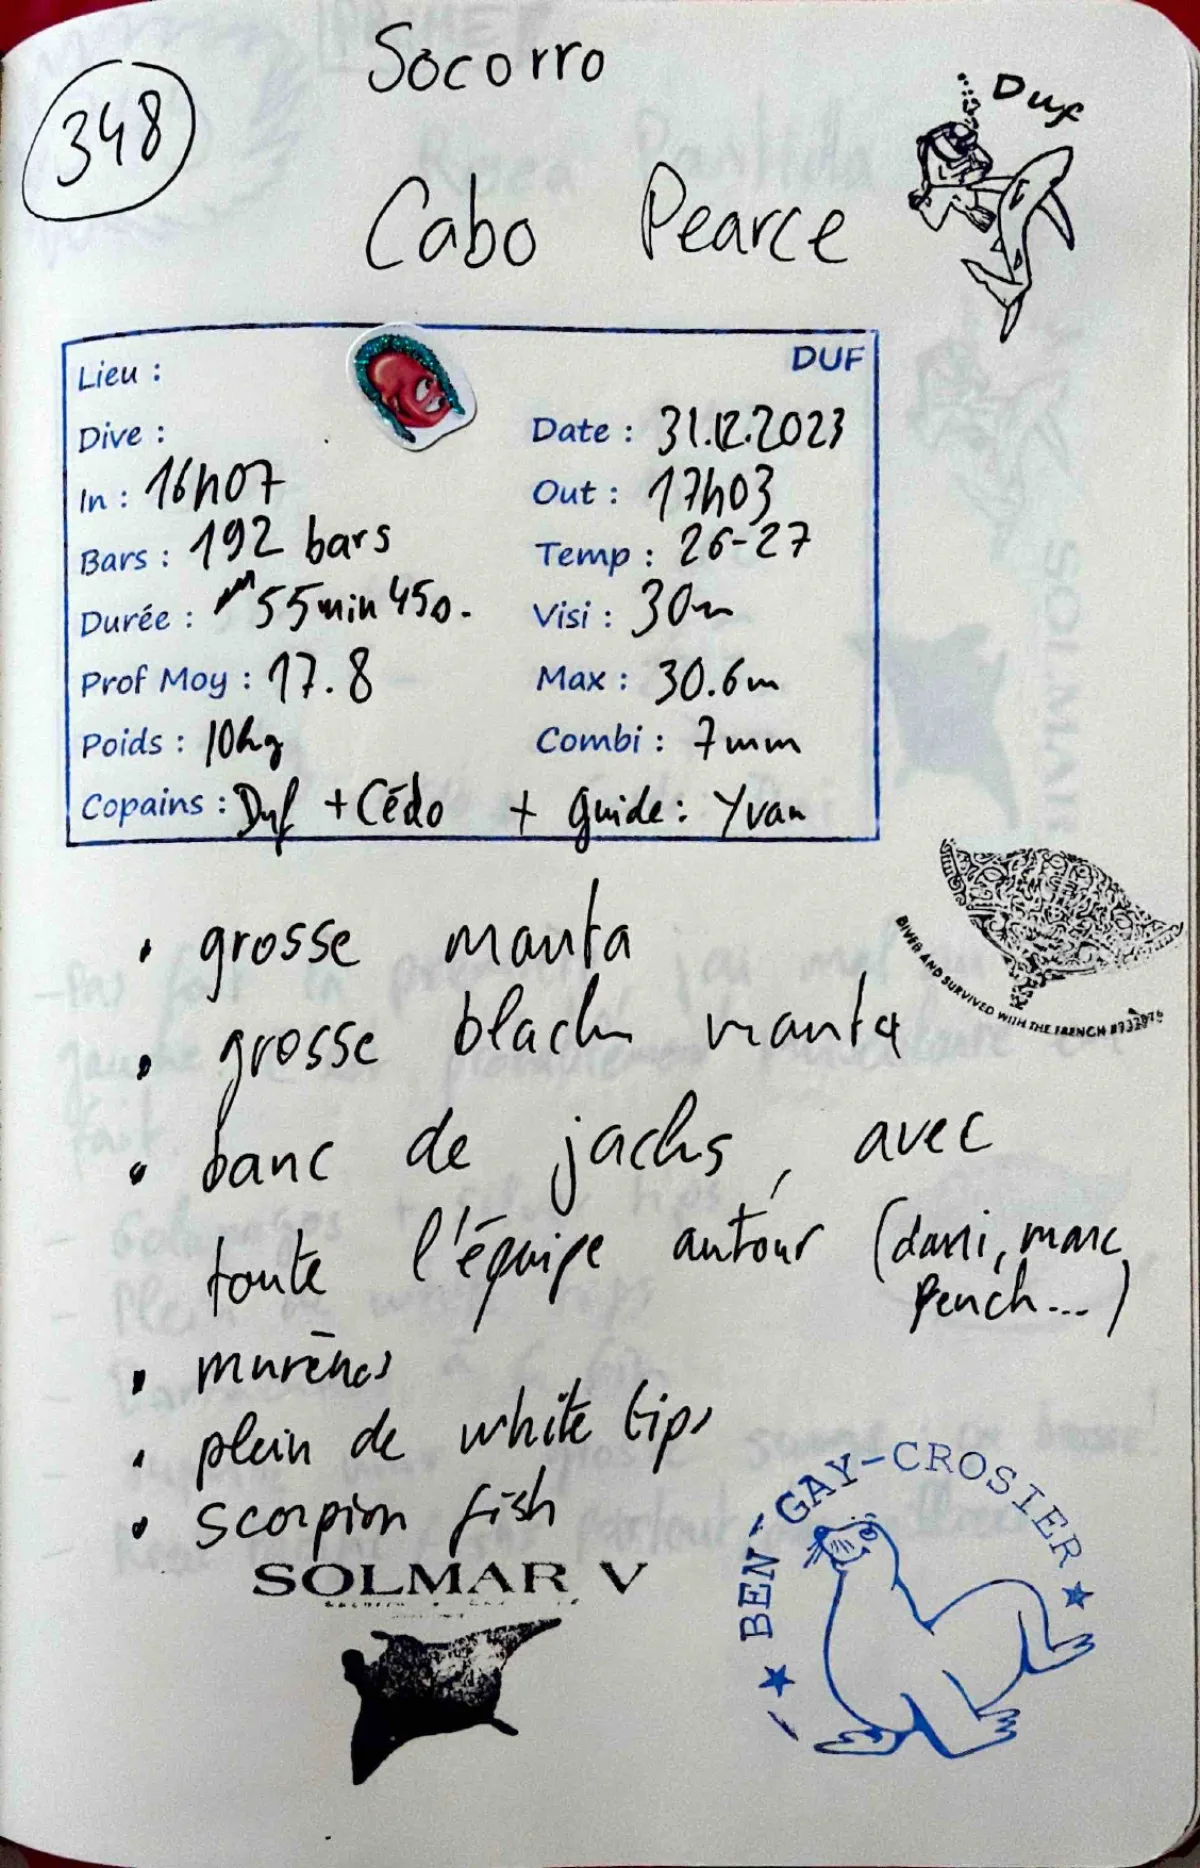 348
Socorro
Duf
Cabo Pearce
Lieu :
DUF
Dive :
Date : 31.12.2023
In : 16h07
Out : 17h03
Bars : 192 bars
Temp : 26-27
Durée : 55min 45s.
Visi : 30m
Prof Moy : 17.8
Max : 30.6m
Poids : 10kg
Combi : 7mm
Copains : Duf + Cédo + guide : Yvan
• grosse manta
DIVED AND SURVIVED WITH THE FRENCH
• grosse black manta
• banc de jacks, avec
toute l'équipe autour (dani, marc,
Pench...)
• murènes
• plein de white tips
• scorpion fish
SOLMAR V
BEN GAY-CROSIER